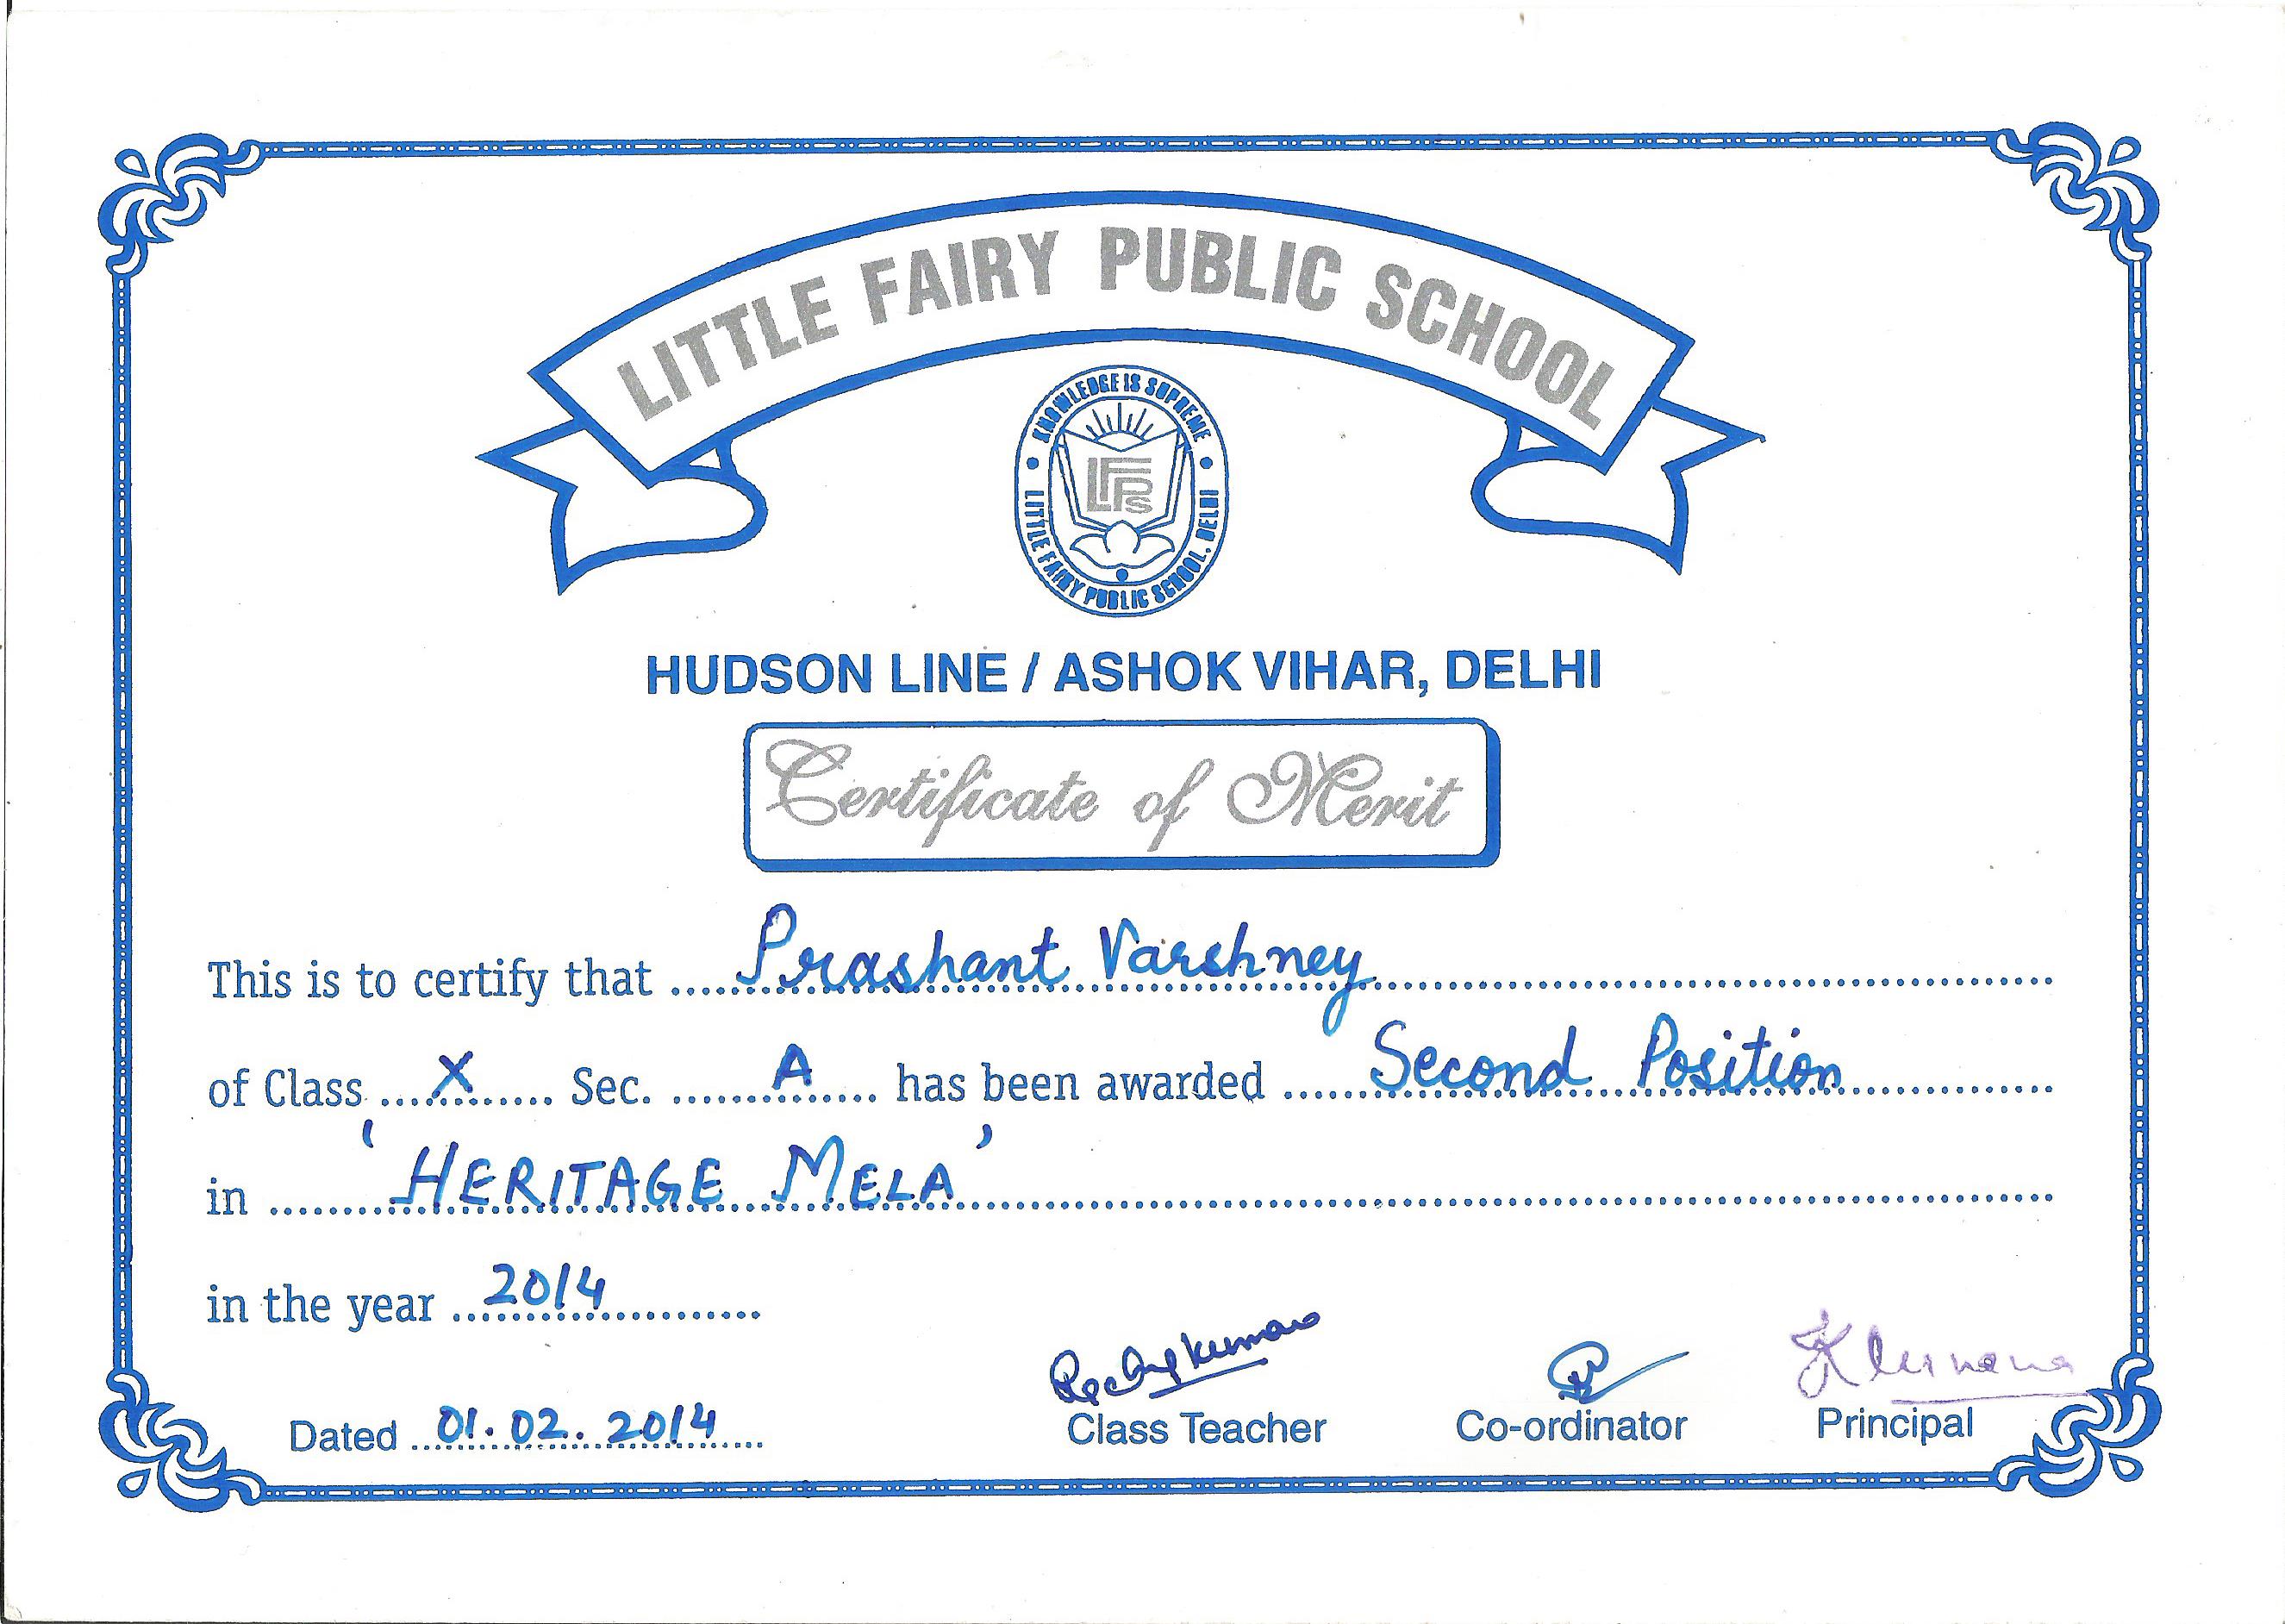 LITTLE FAIRY PUBLIC SCHOOL
KNOWLEDGE IS SUPREME
LFPS
LITTLE FAIRY PUBLIC SCHOOL, DELHI
HUDSON LINE / ASHOK VIHAR, DELHI
Certificate of Merit
This is to certify that Prashant Varshney
of Class X Sec. A has been awarded Second Position
in 'HERITAGE MELA'
in the year 2014
Dated 01.02.2014
Class Teacher Co-ordinator Principal